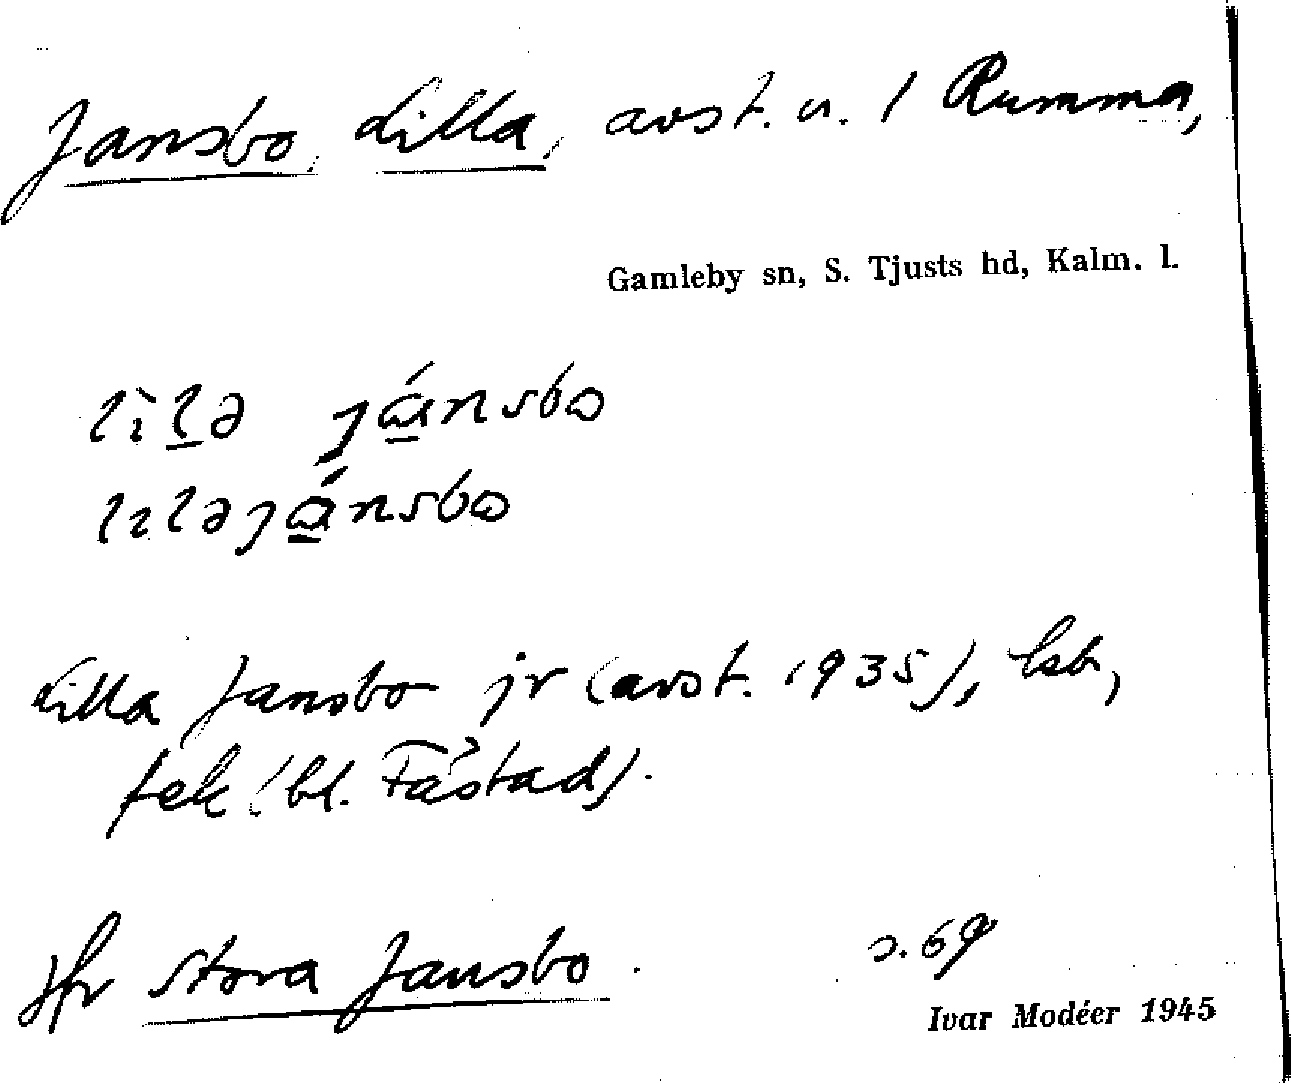 Jansbo, Lilla, avst. u. 1 Rumma,
Gamleby sn, S. Tjusts hd, Kalm. l.
lìlə jánsbo
lıləjánsbo
Lilla Jansbo jr (avst. 1935), lsb,
fek (bl. Fåstad).
Jfr Stora Jansbo.
s. 69
Ivar Modéer 1945